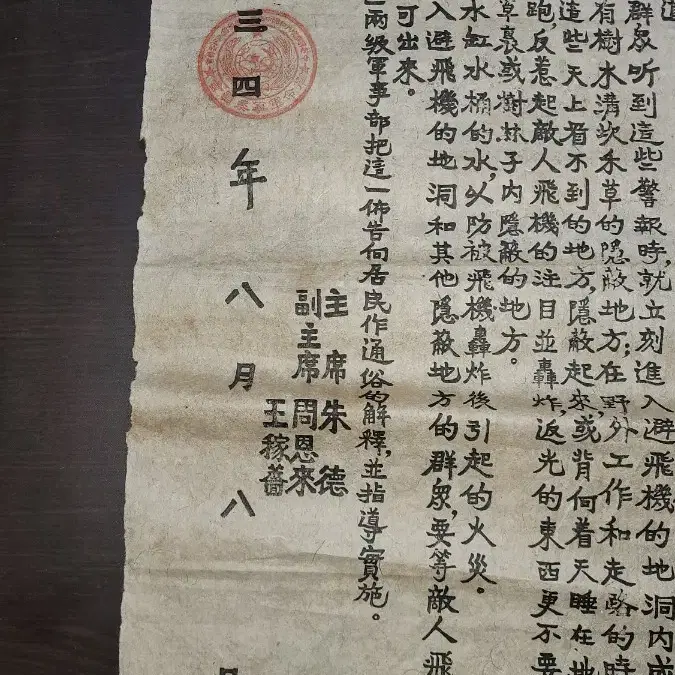 群眾听到這些警報時,就立刻進入避飛機的地洞內
有樹木溝坎禾草的隱蔽地方;在野外工作和走路的時
這些天上看不到的地方,隱蔽起來,或背向着天睡在地
跑,反惹起敵人飛機的注目並轟炸,返光的東西更不要
草裏或樹林子內隱蔽的地方。
水缸水桶的水,以防被飛機轟炸後引起的火災。
入避飛機的地洞和其他隱蔽地方的群眾,要等敵人飛
可出來。
兩級軍事部把這一佈告向居民作通俗的解釋,並指導實施。
主席朱德
副主席周恩來
王稼薔
三四年八月八